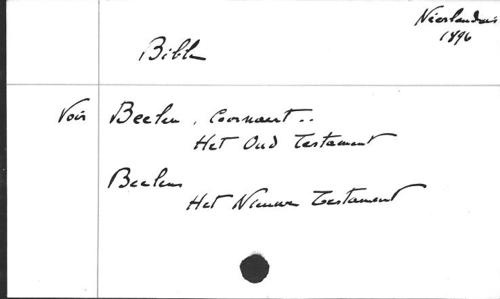 Néerlandais
1896
Bible
Voir Beelen, Coornaert..
Het Oud Testament
Beelens
Het Nieuwe Testament